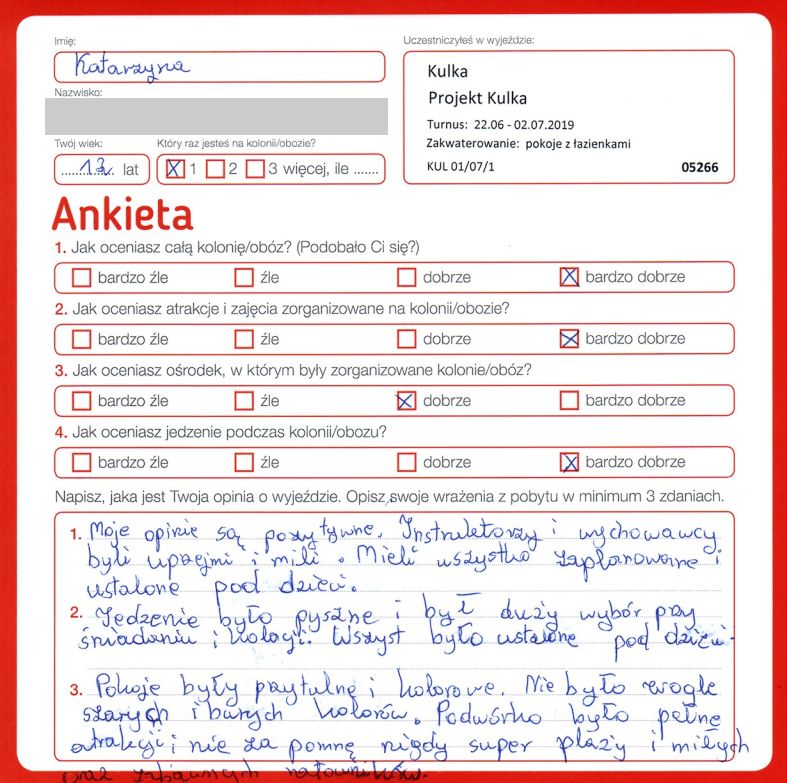 Imię:
Katarzyna
Nazwisko:
Twój wiek:
13 lat
Który raz jesteś na kolonii/obozie?
1 2 3 więcej, ile .......
Uczestniczyłeś w wyjeździe:
Kulka
Projekt Kulka
Turnus: 22.06 - 02.07.2019
Zakwaterowanie: pokoje z łazienkami
KUL 01/07/1 05266
Ankieta
1. Jak oceniasz całą kolonię/obóz? (Podobało Ci się?)
bardzo źle źle dobrze bardzo dobrze
2. Jak oceniasz atrakcje i zajęcia zorganizowane na kolonii/obozie?
bardzo źle źle dobrze bardzo dobrze
3. Jak oceniasz ośrodek, w którym były zorganizowane kolonie/obóz?
bardzo źle źle dobrze bardzo dobrze
4. Jak oceniasz jedzenie podczas kolonii/obozu?
bardzo źle źle dobrze bardzo dobrze
Napisz, jaka jest Twoja opinia o wyjeździe. Opisz swoje wrażenia z pobytu w minimum 3 zdaniach.
1. Moje opinie są pozytywne. Instruktorzy i wychowawcy
byli uprzejmi i mili. Mieli wszystko zaplanowane i
ustalone pod dzieci.
2. Jedzenie było pyszne i był duży wybór przy
śniadaniu i kolacji. Wszyst było ustalone pod dzieci
3. Pokoje były przytulne i kolorowe. Nie było wogle
szarych i burych kolorów. Podwórko było pełne
atrakcji i nie za pomnę nigdy super plaży i miłych
oraz zabawnych ratowników.